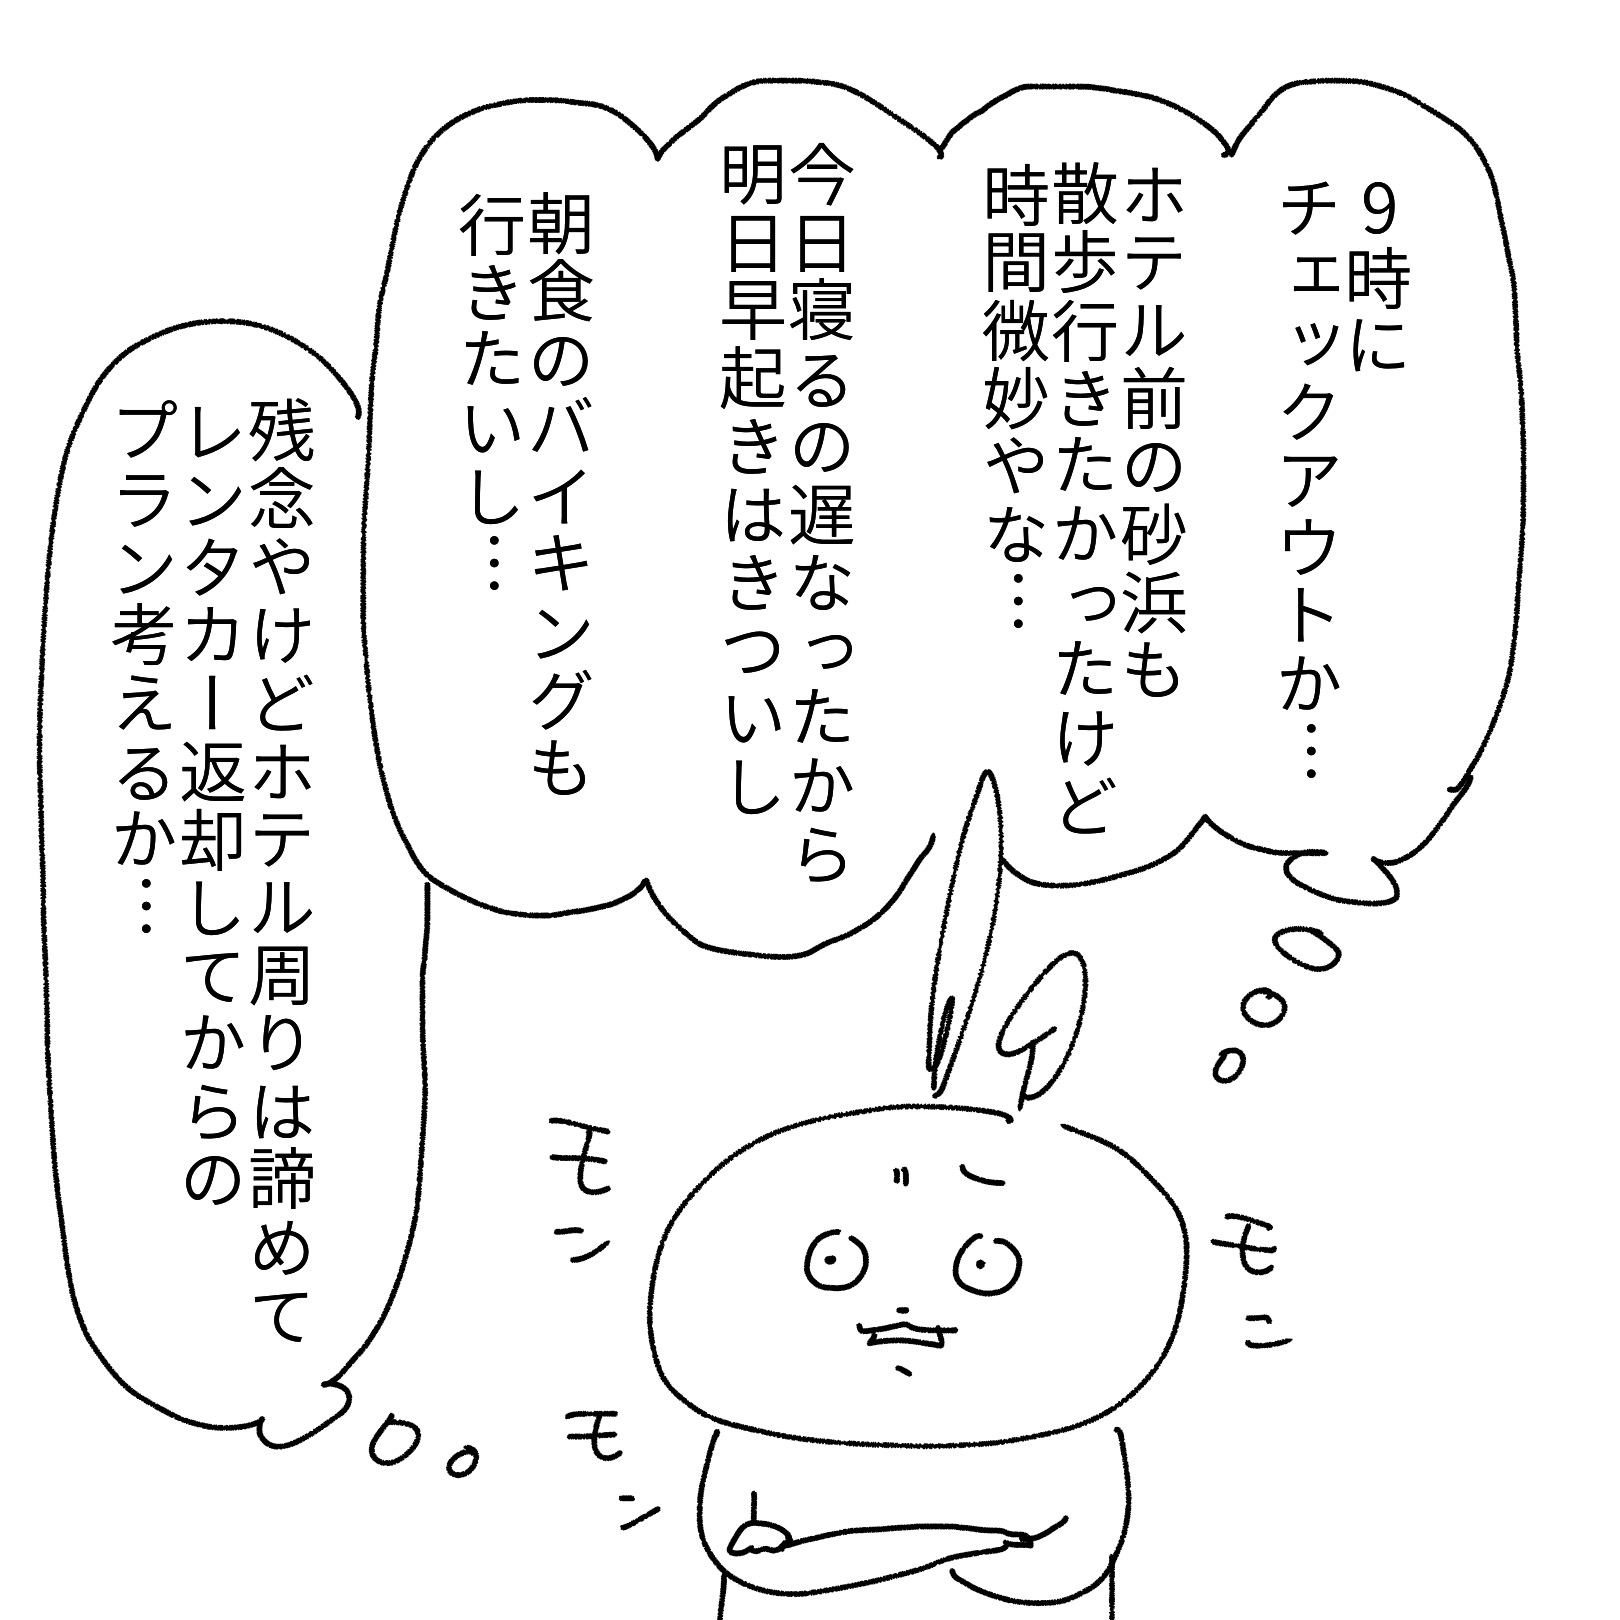 9時に
チェックアウトか…
ホテル前の砂浜も
散歩行きたかったけど
時間微妙やな…
今日寝るの遅なったから
明日早起きはきついし
朝食のバイキングも
行きたいし…
残念やけどホテル周りは諦めて
レンタカー返却してからの
プラン考えるか…
モン
モン
モン